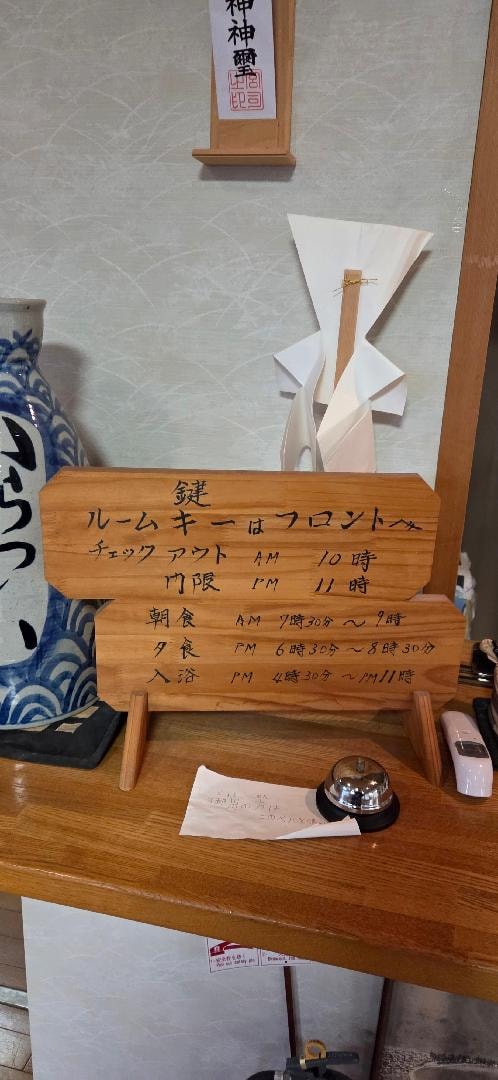 神神璽
鍵
ルームキーはフロントへ
チェックアウト AM 10時
門限 PM 11時
朝食 AM 7時30分～9時
夕食 PM 6時30分～8時30分
入浴 PM 4時30分～PM11時
らっ
御用の方は